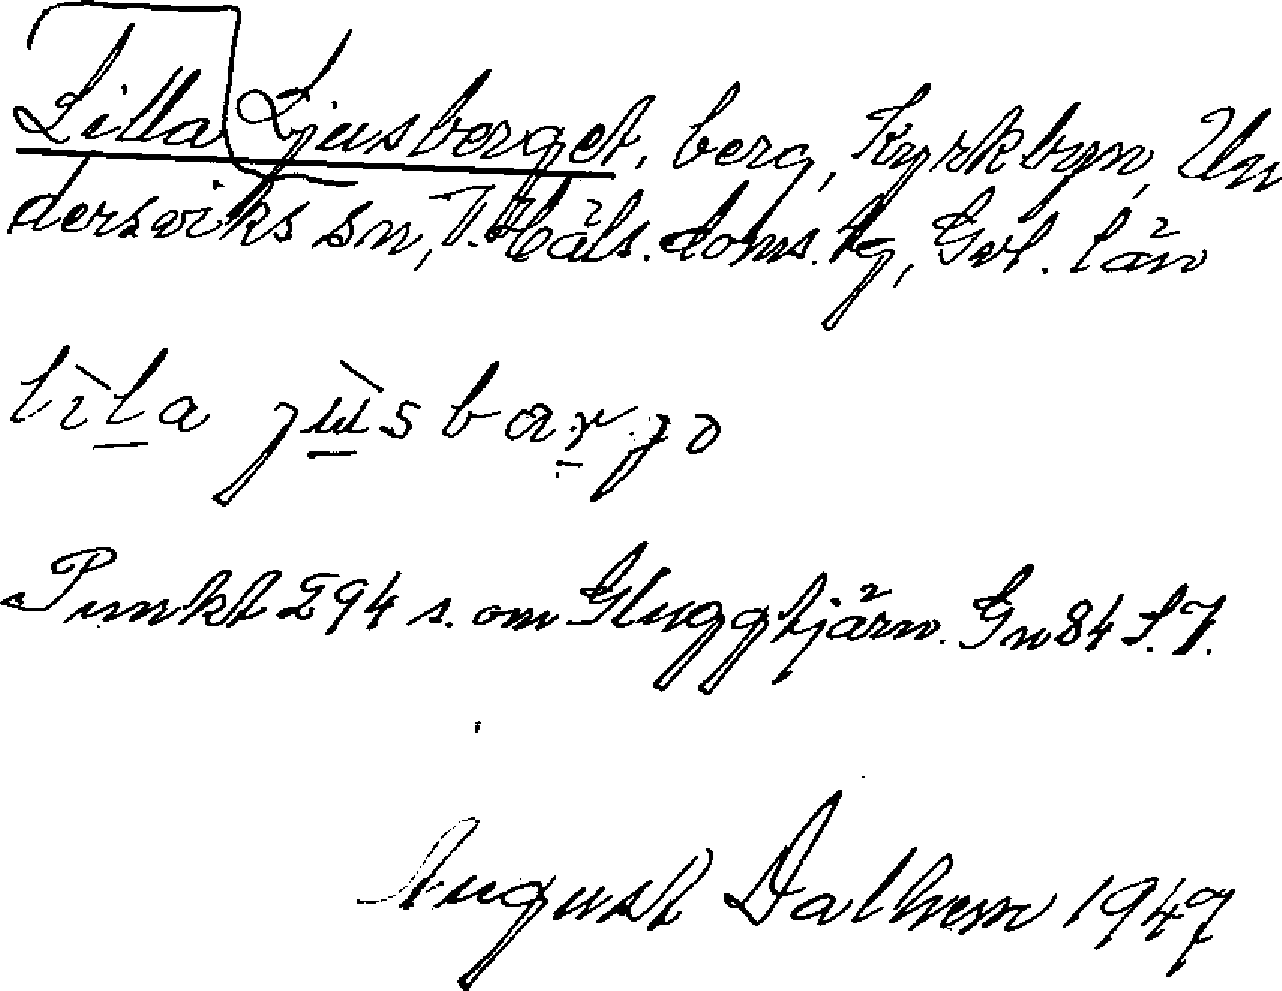 Lilla Ljusberget, berg, Kyrkbyn, Un
dersviks sn, V. Häls. doms. tg, Gvl. län
lìla jùsbarjə
Punkt 294 s. om Gluggtjärn. Gn 84 S.J.
August Dalhem 1947